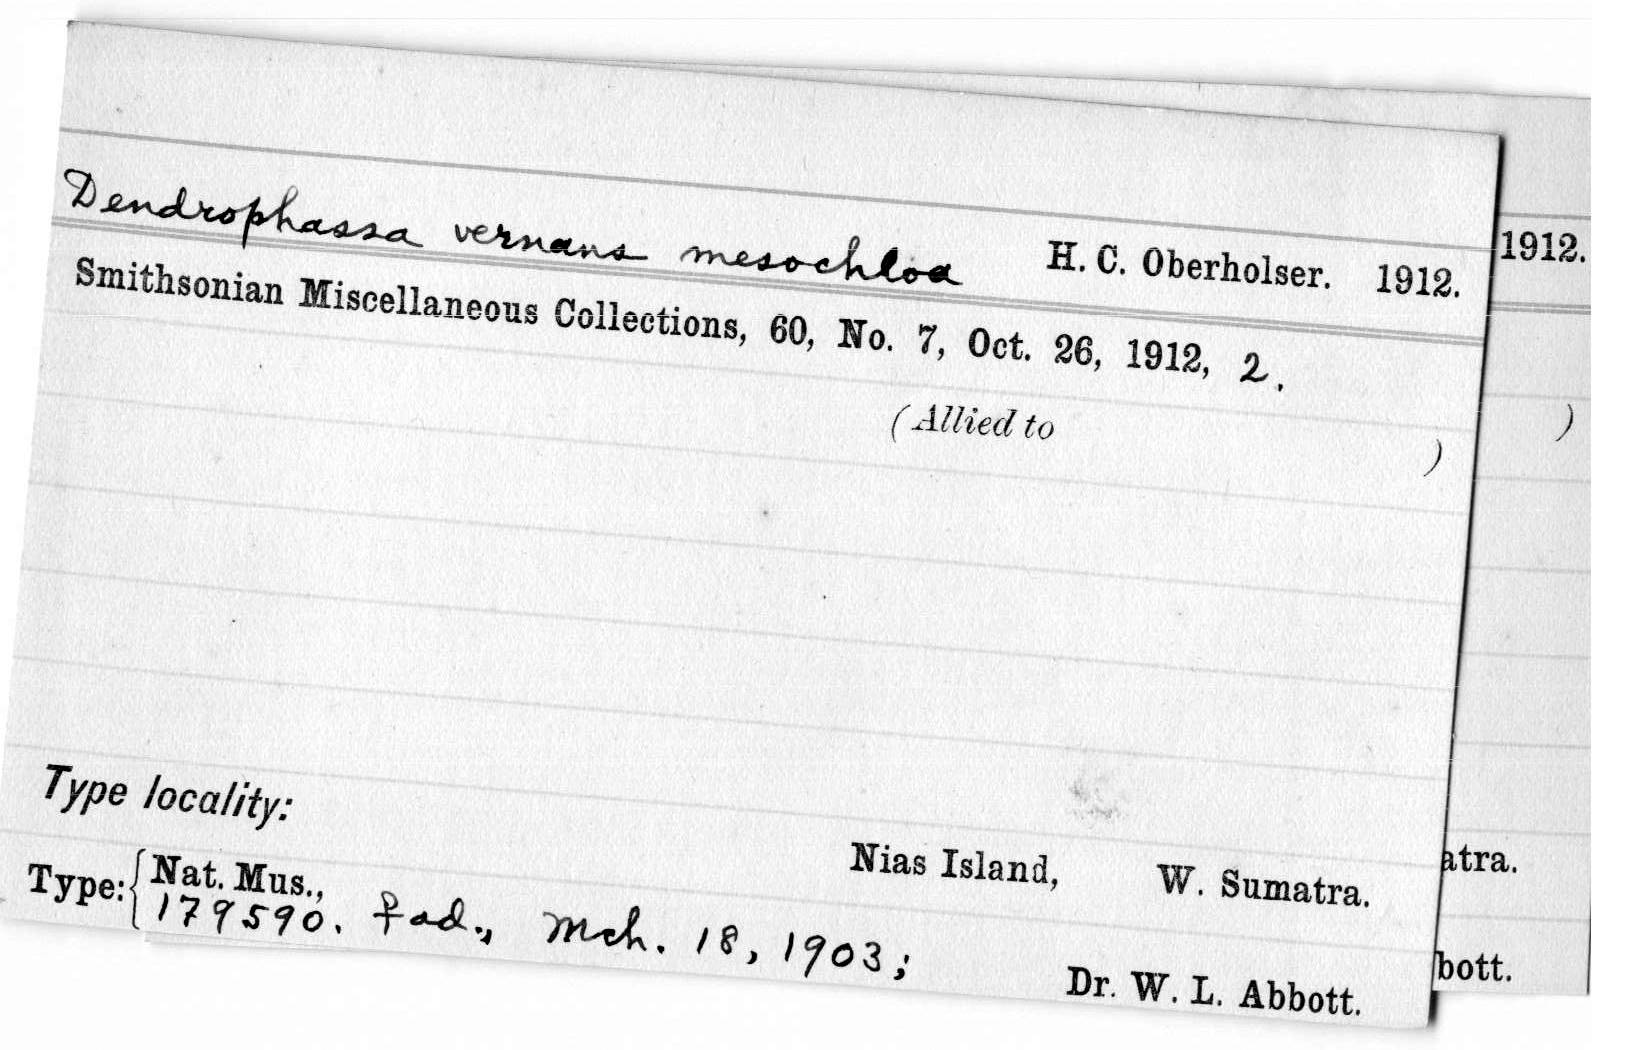 Dendrophassa vernans mesochloa H. C. Oberholser. 1912.
Smithsonian Miscellaneous Collections, 60, No. 7, Oct. 26, 1912, 2.
(Allied to )
Type locality:
Nias Island, W. Sumatra.
Type: { Nat. Mus.,
179590. ♀ ad., Mch. 18, 1903; Dr. W. L. Abbott.
1912.
)
atra.
bott.